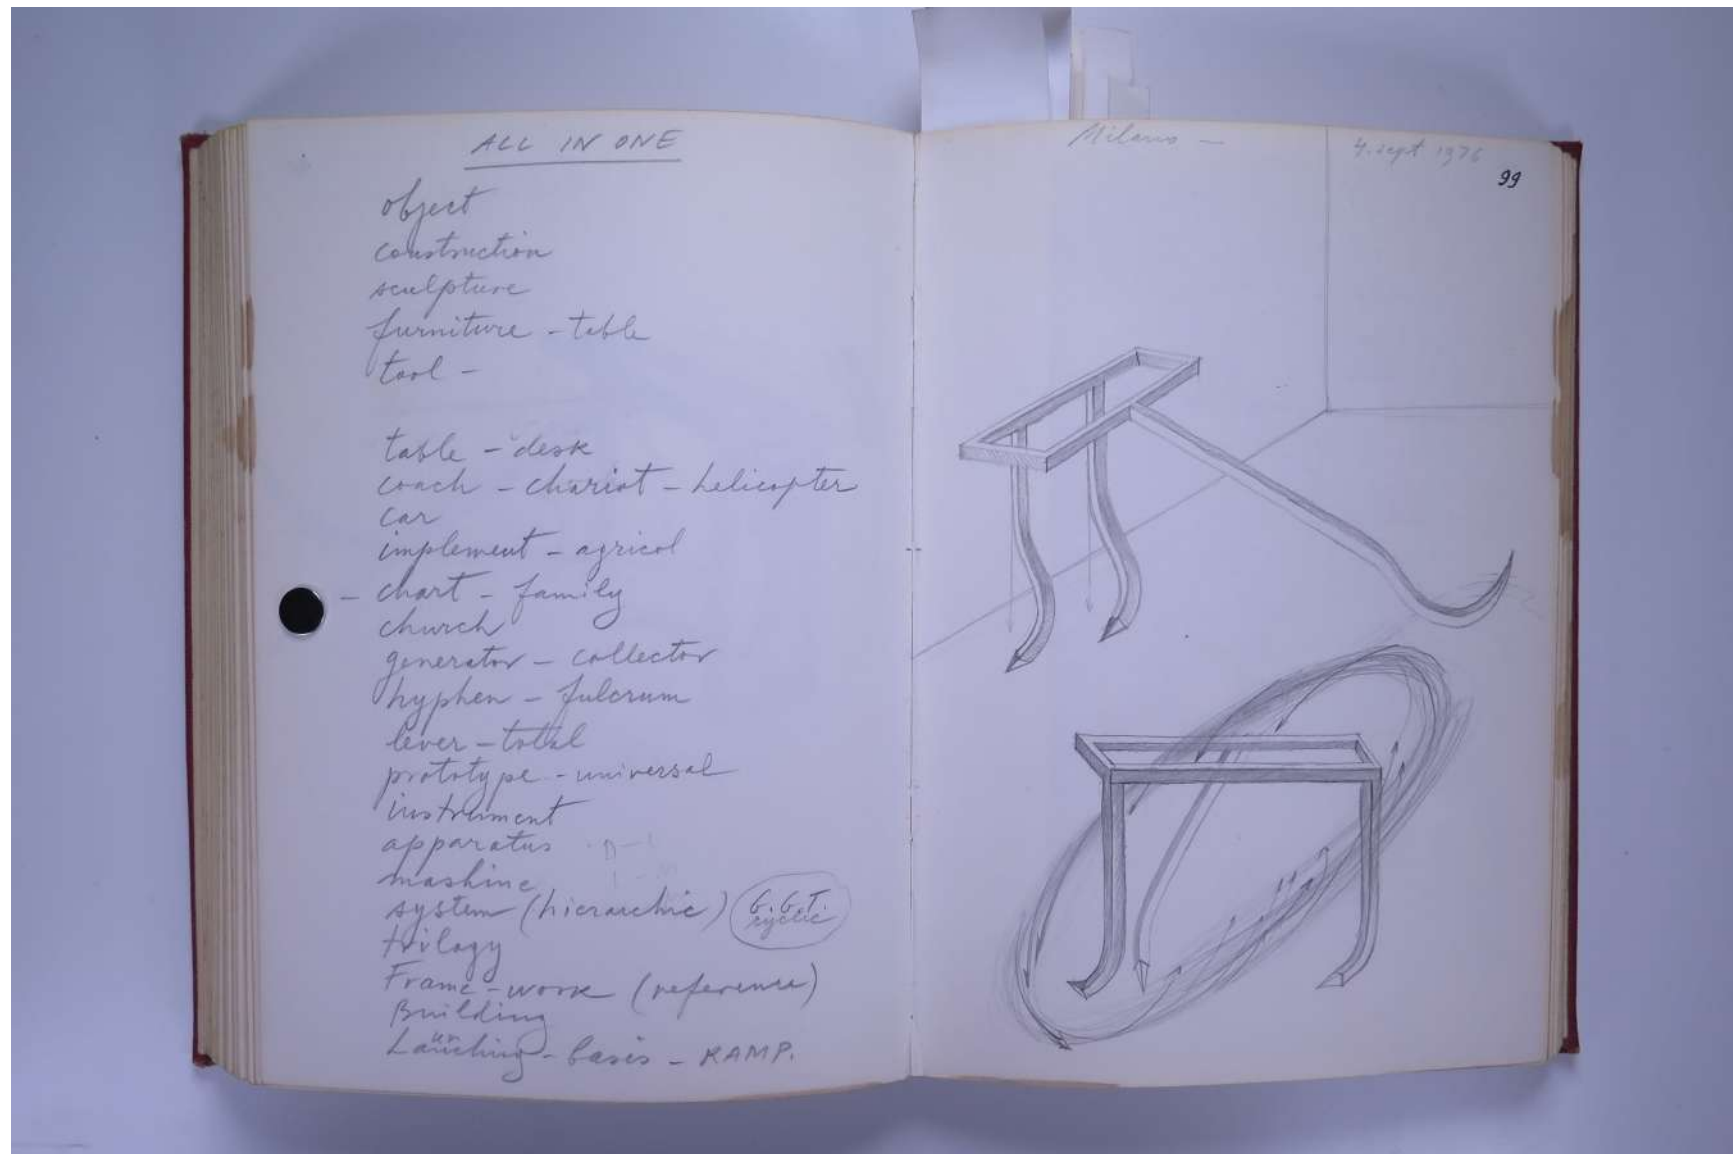 ALL IN ONE
object
construction
sculpture
furniture - table
tool -
table - desk
coach - chariot - helicopter
car
implement - agricol
- chart - family
church
generator - collector
hyphen - fulcrum
lever - total
prototype - universal
instrument
apparatus
mashine
system (hierarchic) G.G.T.
cyclic
trilogy
Frame-work (reference)
Building
basis - RAMP.
Milano -
4. sept 1976
99